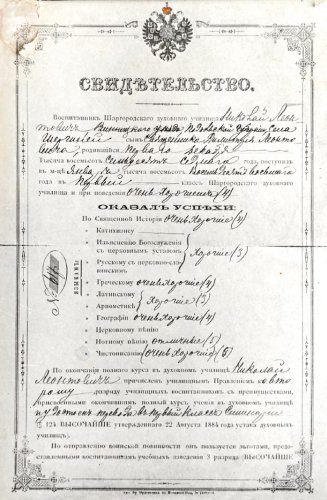 СВИДѢТЕЛЬСТВО.
Воспитанникъ Шаргородскаго духовнаго училища Николай Леон
товичъ, Винницкаго уѣзда Подольской губерніи, села
сынъ Священника Леонто
вича, родившійся перваго декабря
Тысяча восемьсотъ семьдесятъ седьмаго года, поступилъ
въ м-цѣ Тысяча восемьсотъ восьмаго
въ первый классъ Шаргородскаго духовнаго
училища и при поведеніи очень хорошемъ (4)
ОКАЗАЛЪ УСПѢХИ:
По Священной Исторіи очень хорошіе (4)
Катихизису
Изъясненію Богослуженія
съ церковнымъ уставомъ
Русскому съ церковно-сла-
вянскимъ
хорошіе (3)
ЯЗЫКАМЪ:
Греческому очень хорошіе (4)
Латинскому
Ариѳметикѣ
хорошіе (3)
Географіи очень хорошіе (4)
Церковному пѣнію
Нотному пѣнію отличные (5)
Чистописанію очень хорошіе (5)
По окончаніи полнаго курса въ духовномъ училищѣ Николай
Леонтовичъ причисленъ училищнымъ Правленіемъ ко вто
рому разряду училищныхъ воспитанниковъ съ преимуществами,
присвоенными окончившимъ полный курсъ ученія въ духовномъ училищѣ
и удостоенъ перевода въ первый классъ семинаріи
(§ 124 ВЫСОЧАЙШЕ утвержденнаго 22 Августа 1884 года устава духовныхъ
училищъ).
По отправленію воинской повинности онъ пользуется льготами, предо-
ставленными воспитанникамъ учебныхъ заведеній 3 разряда (ВЫСОЧАЙШЕ